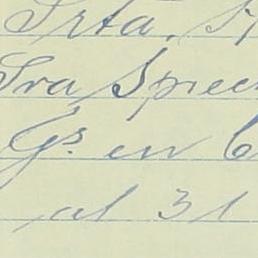 Srta.
Sra Spre
Gs. en
al 31